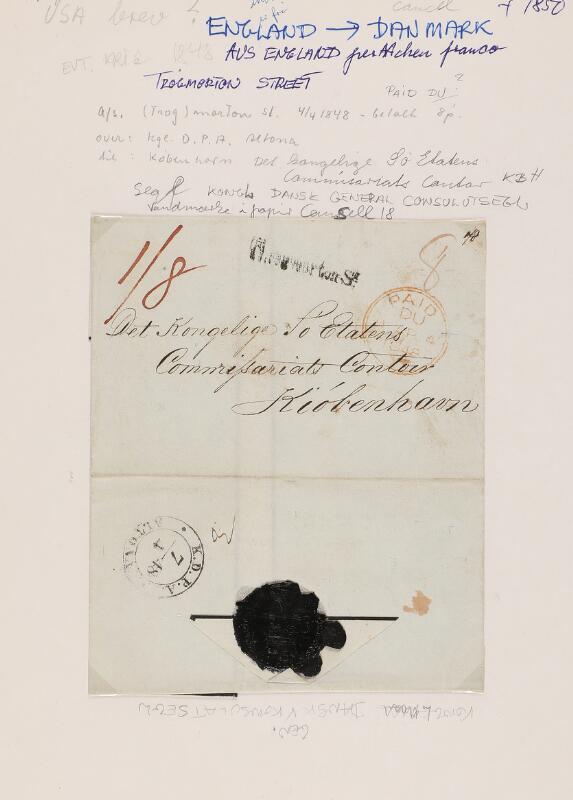 USA brev ?
Cancell
+ 1850
ENGLAND → DANMARK
EVT. 1848
AUS ENGLAND franco
TROGMORTON STREET
PAID DU ?
a/s. (Trog)morton st. 4/4 1848 - betalt 8p.
over: Kgl. D.P.A. Altona
til: København Det kongelige Sö Etatens
Commissariats Contor KBH
Segl KONGL DANSK GENERAL CONSULUTSEGL
Vandmærke i papir Cansell 18
1/8
morton St
8
PAID
DU
4
Det Kongelige Sö Etatens
Commissariats Contoir
Kióbenhavn
ALTONA
7
4 48
K.D.P.A.
KONGL DANSK KONSULATSEGL
GEN.